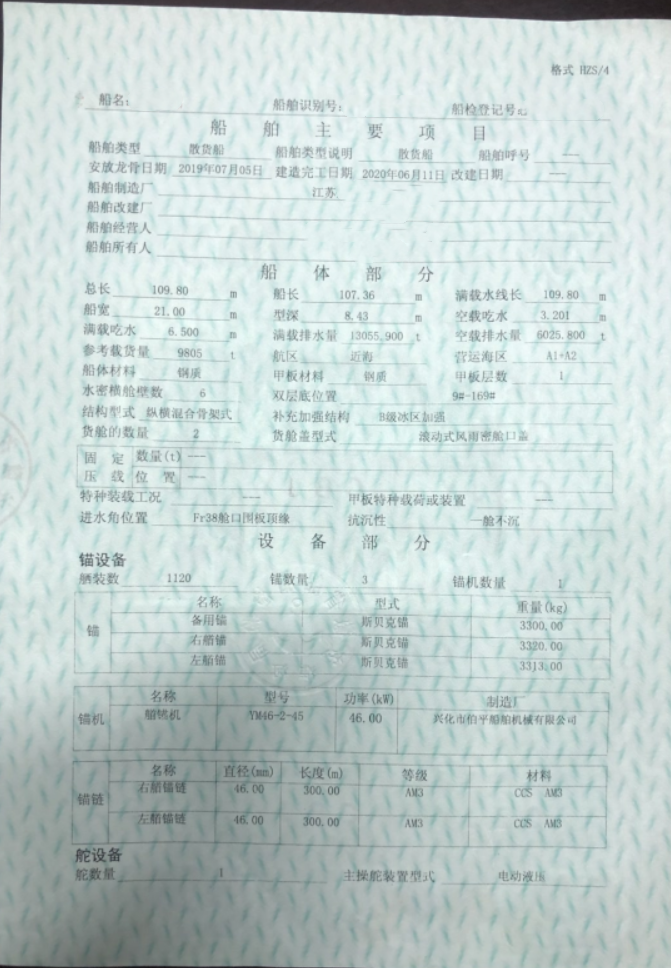 格式 HZS/4
船名： 船舶识别号： 船检登记号：
船 舶 主 要 项 目
船舶类型 散货船 船舶类型说明 散货船 船舶呼号 ---
安放龙骨日期 2019年07月05日 建造完工日期 2020年06月11日 改建日期 ---
船舶制造厂 江苏
船舶改建厂
船舶经营人
船舶所有人
船 体 部 分
总长 109.80 m 船长 107.36 m 满载水线长 109.80 m
船宽 21.00 m 型深 8.43 m 空载吃水 3.201 m
满载吃水 6.500 m 满载排水量 13055.900 t 空载排水量 6025.800 t
参考载货量 9805 t 航区 近海 营运海区 A1+A2
船体材料 钢质 甲板材料 钢质 甲板层数 1
水密横舱壁数 6 双层底位置 9#-169#
结构型式 纵横混合骨架式 补充加强结构 B级冰区加强
货舱的数量 2 货舱盖型式 滚动式风雨密舱口盖
固 定 数量(t) ---
压 载 位 置 ---
特种装载工况 --- 甲板特种载荷或装置 ---
进水角位置 Fr38舱口围板顶缘 抗沉性 一舱不沉
设 备 部 分
锚设备
舾装数 1120 锚数量 3 锚机数量 1
名称 型式 重量(kg)
锚 备用锚 斯贝克锚 3300.00
右艏锚 斯贝克锚 3320.00
左艏锚 斯贝克锚 3313.00
名称 型号 功率(kW) 制造厂
锚机 艏锚机 YM46-2-45 46.00 兴化市伯平船舶机械有限公司
名称 直径(mm) 长度(m) 等级 材料
锚链 右艏锚链 46.00 300.00 AM3 CCS AM3
左艏锚链 46.00 300.00 AM3 CCS AM3
舵设备
舵数量 1 主操舵装置型式 电动液压